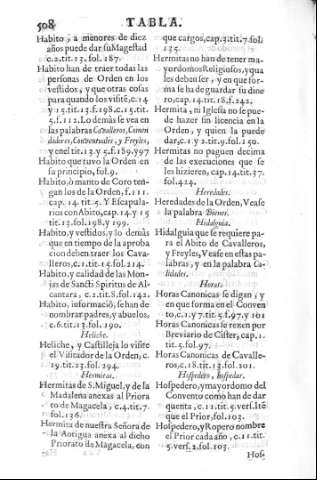 508
TABLA.
Habito, a menores de diez
años puede dar su Magestad
c.2.tit.13. fol. 187.
Habito han de traer todas las
personas de Orden en los
vestidos, y que otras cosas
para quando los visitē, c.14.
y 15.tit.13.f.198.c.19.tit.
5.f.112. Lo demàs se vea en
las palabras Cavalleros, Comen
dadores, Conventuales, y Freyles,
y en el tit.13. y 5.f.189.y 97
Habito que tuvo la Orden en
su principio, fol.9.
Habito, ò manto de Coro ten-
gan los de la Orden, f.111.
cap. 14. tit. 5. Y Escapula-
rios con Abito, cap.14. y 15
tit.13.fol.198.y 199.
Habito, y vestidos, y lo demàs
que en tiempo de la aproba
cion deben traer los Cava-
lleros, c.1.tit.14.fol.214.
Habito, y calidad de las Mon-
jas de Sancti Spiritus de Al-
cantara, c.2.tit.8.fol.142.
Habito, informaciō, se han de
nombrar padres, y abuelos,
c.6.tit.13.fol.190.
Heliche.
Heliche, y Castilleja lo visite
el Visitador de la Orden, c.
19.tit.23.fol.294.
Hermitas.
Hermitas de S. Miguel, y de la
Madalena anexas al Priora
to de Magacela, c.4.tit.7.
fol.136.
Hermita de nuestra Señora de
la Antigua anexa al dicho
Priorato de Magacela, con
que cargos, cap.3.tit.7.fol.
135.
Hermitas no han de tener ma-
yordomos Religiosos, y qua
les deben ser, y en que for-
ma se ha de guardar su dine
ro, cap.14.tit.18.f.242.
Hermita, ni Iglesia no se pue-
de hazer sin licencia en la
Orden, y quien la puede
dar, c.1 y 2.tit.9.fol.150.
Hermitas no paguen decima
de las execuciones que se
les hizieren, cap.14.tit.37.
fol.424.
Heredades.
Heredades de la Orden, Vease
la palabra Bienes.
Hidalguia.
Hidalguia que se requiere pa-
ra el Abito de Cavalleros,
y Freyles, Vease en estas pa-
labras, y en la palabra Ca-
lidades.
Horas.
Horas Canonicas se digan y
en que forma en el Conven
to, c.1. y 7.tit.5.f.97.y 101
Horas Canonicas se rezen por
Breviario de Cister, cap.1.
tit.5.fol.97.
Horas Canonicas de Cavalle-
ros, c.18.tit.13.fol.201.
Hospedero, hospedar.
Hospedero, y mayordomo del
Convento como han de dar
quenta, c.11.tit.5.vers.Itē
que el Prior, fol.103.
Hospedero, y Ropero nombre
el Prior cada año, c.11.tit.
5.vers.2.fol.103.
Hos-